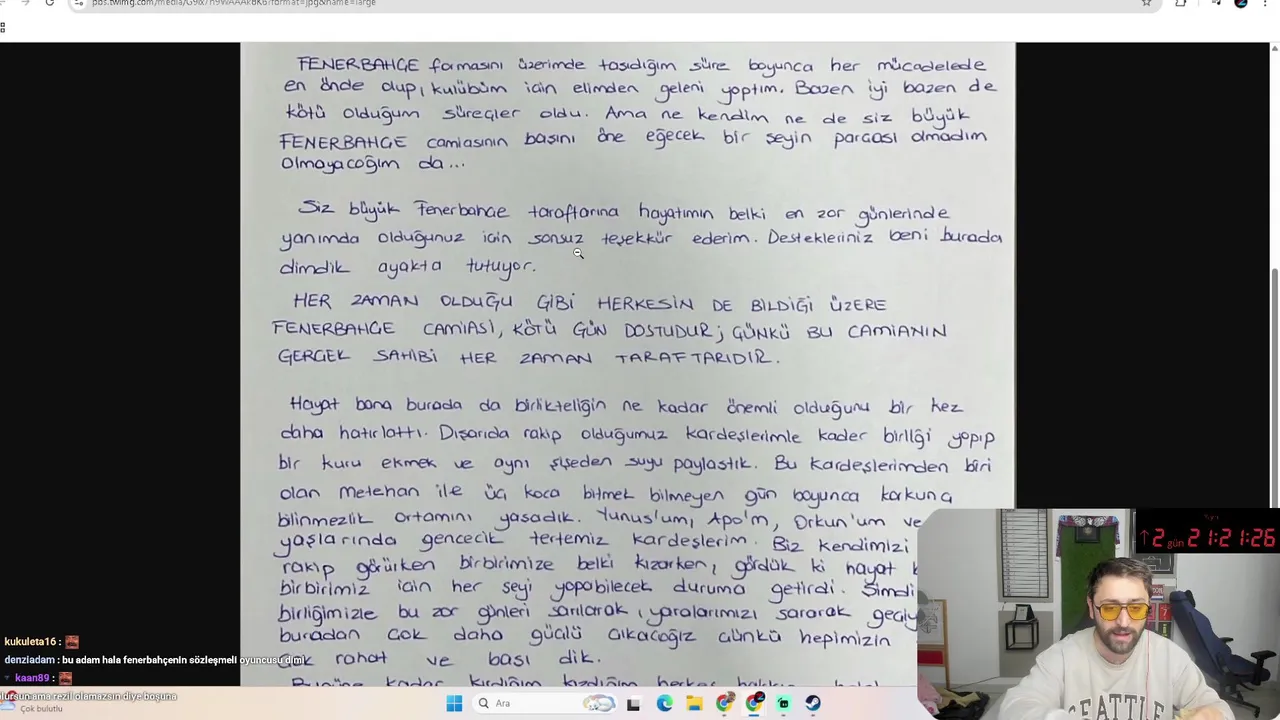 pbs.twimg.com/media/
format=jpg&name=large
FENERBAHÇE formasını üzerimde taşıdığım süre boyunca her mücadelede
en önde olup, kulübüm için elimden geleni yaptım. Bazen iyi bazen de
kötü olduğum süreçler oldu. Ama ne kendim ne de siz büyük
FENERBAHÇE camiasının başını öne eğecek bir şeyin parçası olmadım
olmayacağım da...
Siz büyük Fenerbahçe taraftarına hayatımın belki en zor günlerinde
yanımda olduğunuz için sonsuz teşekkür ederim. Destekleriniz beni burada
dimdik ayakta tutuyor.
HER ZAMAN OLDUĞU GİBİ HERKESİN DE BİLDİĞİ ÜZERE
FENERBAHÇE CAMİASI, KÖTÜ GÜN DOSTUDUR; ÇÜNKÜ BU CAMİANIN
GERÇEK SAHİBİ HER ZAMAN TARAFTARIDIR.
Hayat bana burada da birlikteliğin ne kadar önemli olduğunu bir kez
daha hatırlattı. Dışarıda rakip olduğumuz kardeşlerimle kader birliği yapıp
bir kuru ekmek ve aynı şişeden suyu paylaştık. Bu kardeşlerimden biri
olan Metehan ile üç koca bitmek bilmeyen gün boyunca korkunç
bilinmezlik ortamını yaşadık. Yunus'um, Apo'm, Orkun'um ve
yaşlarında gencecik tertemiz kardeşlerim. Biz kendimizi
rakip görürken birbirimize belki kızarken, gördük ki hayat
birbirimiz için her şeyi yapabilecek duruma getirdi. Şimdi
birliğimizle bu zor günleri sarılarak, yaralarımızı sararak
buradan çok daha güçlü çıkacağız çünkü hepimizin
rahat ve başı dik.
Bugüne kadar kırdığım kızdığım herkes
↑2 gün 21:21:26
kukuleta16 :
denziadam : bu adam hala fenerbahçenin sözleşmeli oyuncusu dimi
kaan89 :
olursun ama rezil olamazsın diye boşuna
Çok bulutlu
Ara
SEATTLE